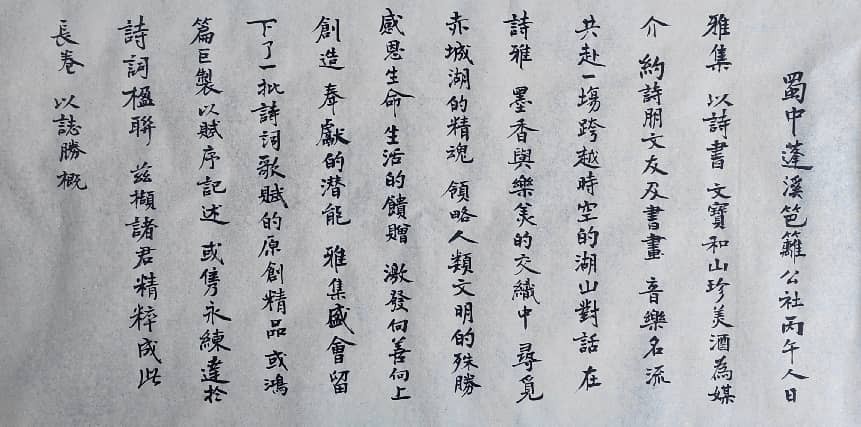 蜀中蓬溪笆籬公社丙午人日
雅集 以詩書 文寶和山珍美酒為媒
介 約詩朋文友及書畫 音樂名流
共赴一場跨越時空的湖山對話 在
詩雅 墨香與樂美的交織中 尋覓
赤城湖的精魂 領略人類文明的殊勝
感恩生命 生活的饋贈 激發向善向上
創造 奉獻的潜能 雅集盛會留
下了一批詩詞歌賦的原創精品 或鴻
篇巨製以賦序記述 或雋永練達於
詩詞楹聯 兹擷諸君精粹成此
長卷 以誌勝概